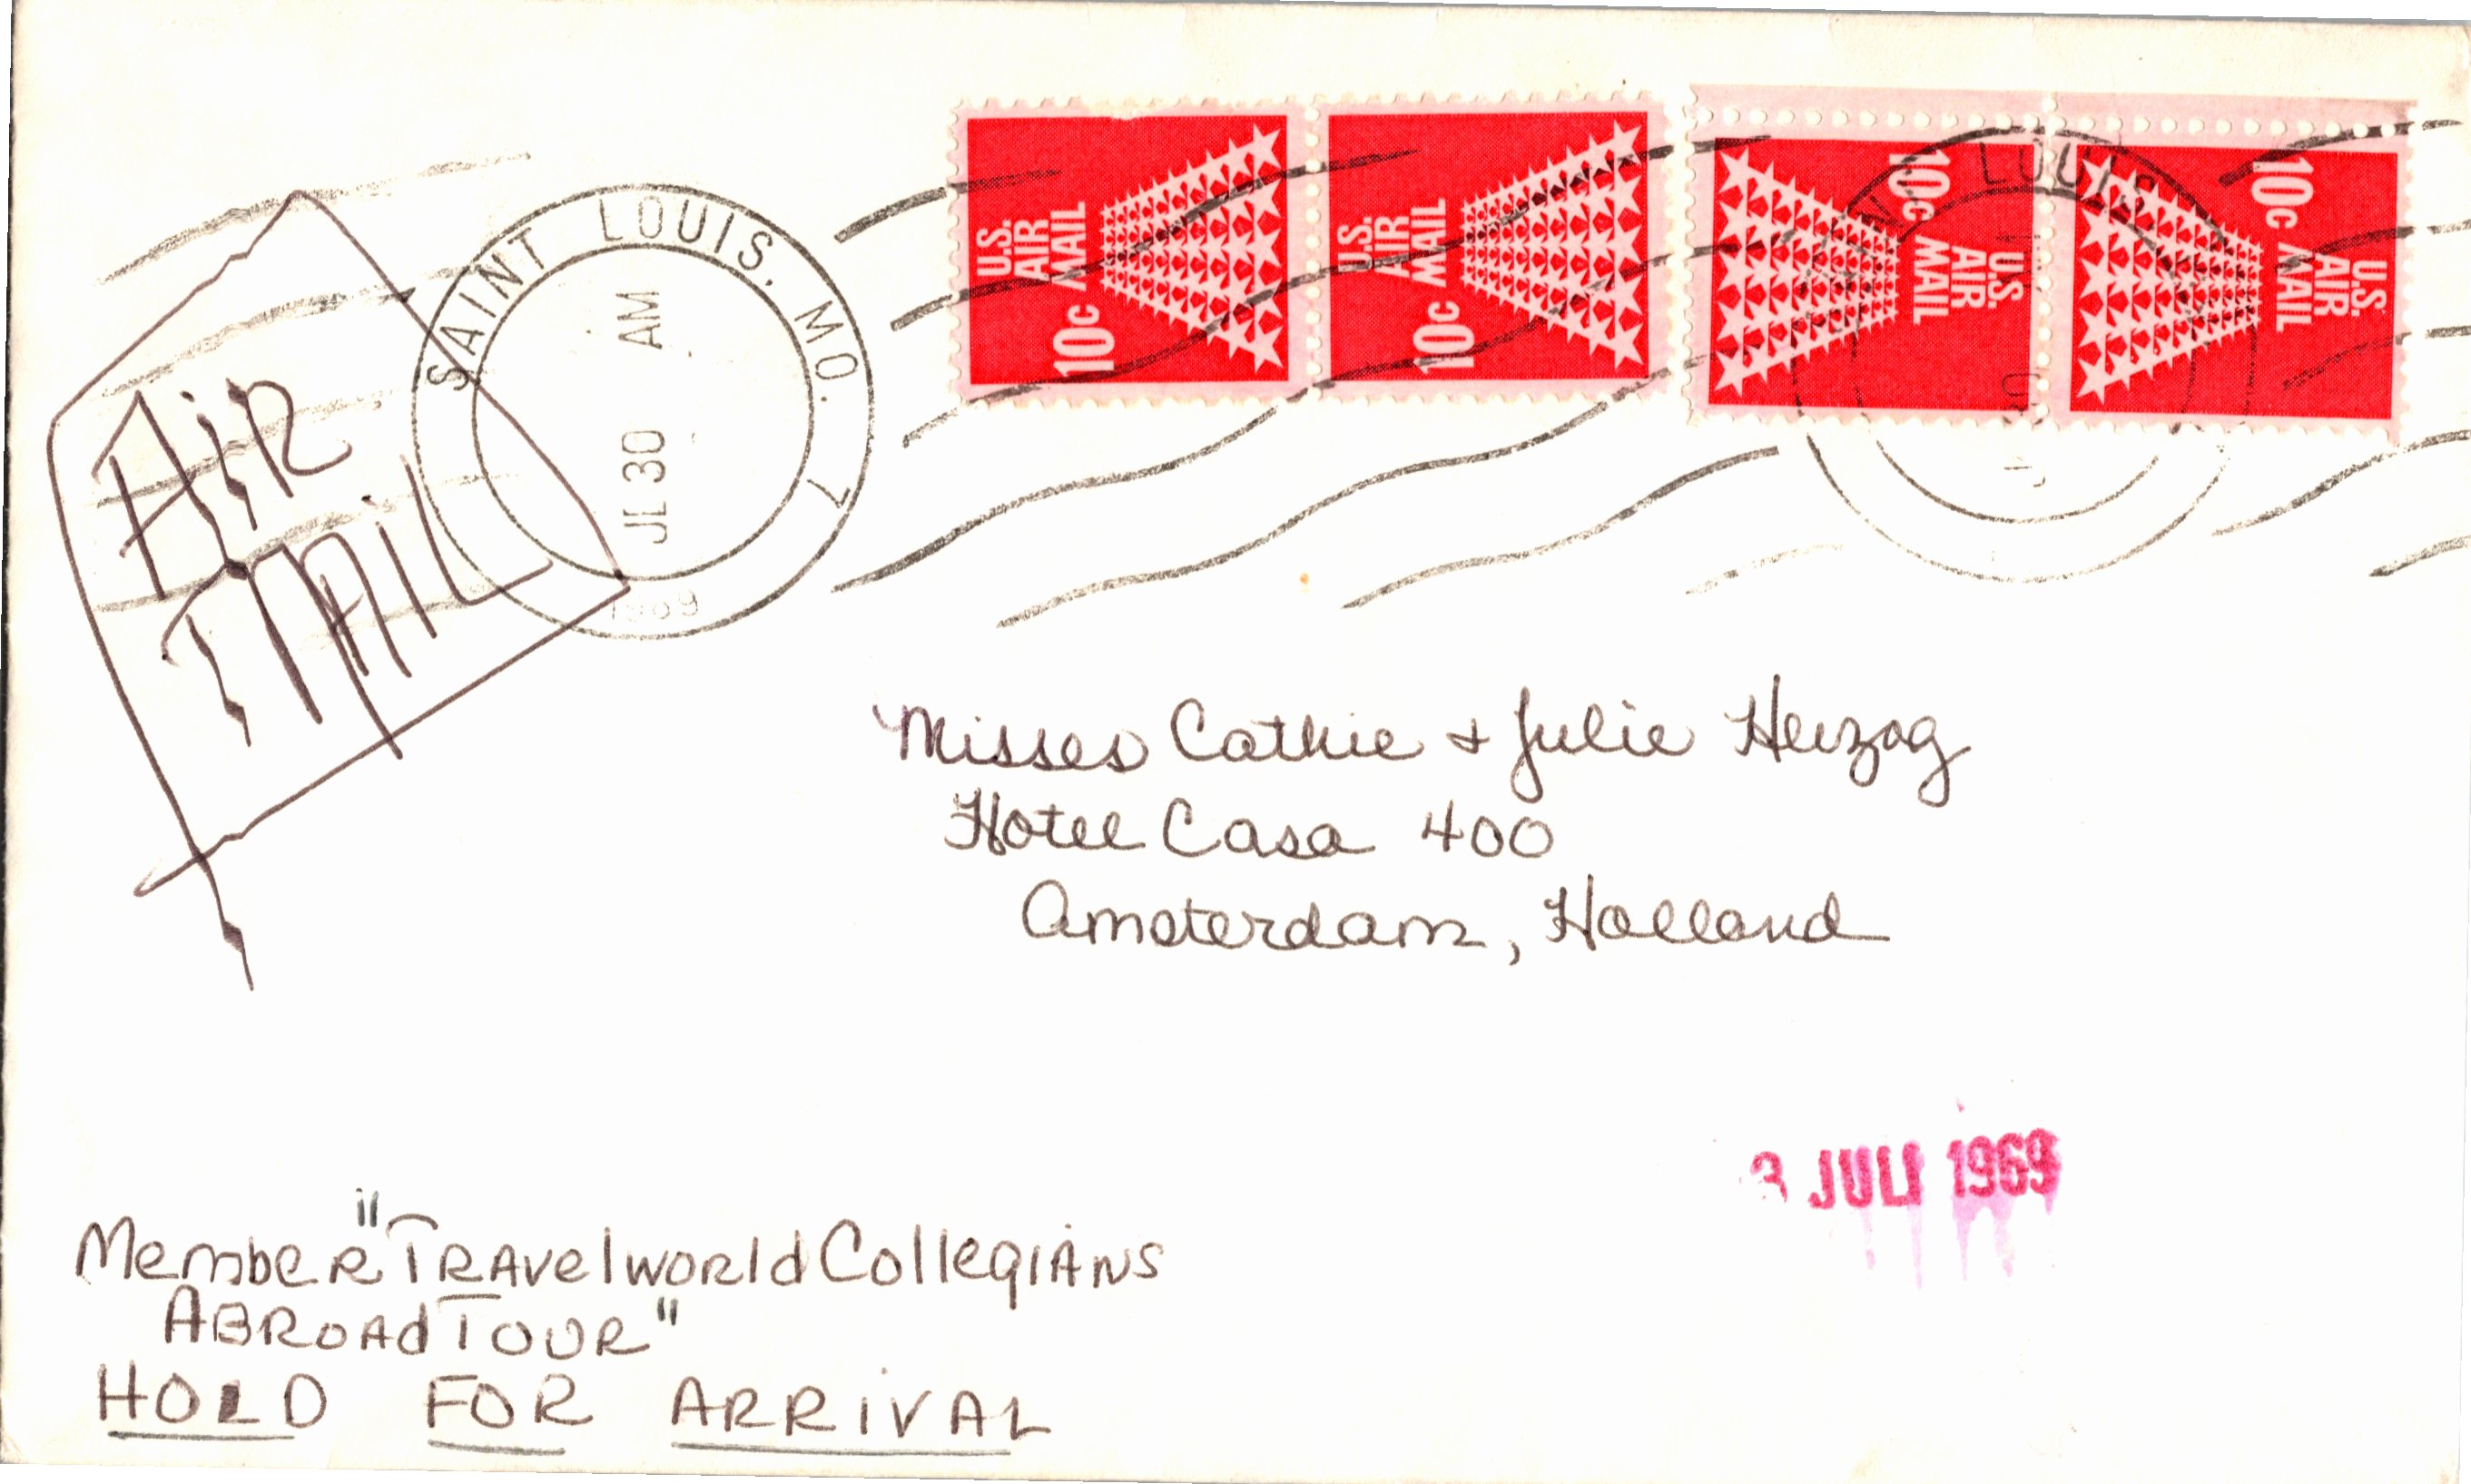 U.S.
AIR
MAIL
10c
U.S.
AIR
MAIL
10c
10c
U.S.
AIR
MAIL
10c
U.S.
AIR
MAIL
SAINT LOUIS, MO. 7
AM
JL 30
1969
LOUIS
AiR
MAiL
Misses Cathie + Julie Herzog
Hotel Casa 400
Amsterdam, Holland
3 JULI 1969
Member "Travelworld Collegians
Abroad Tour"
HOLD FOR ARRiVAL